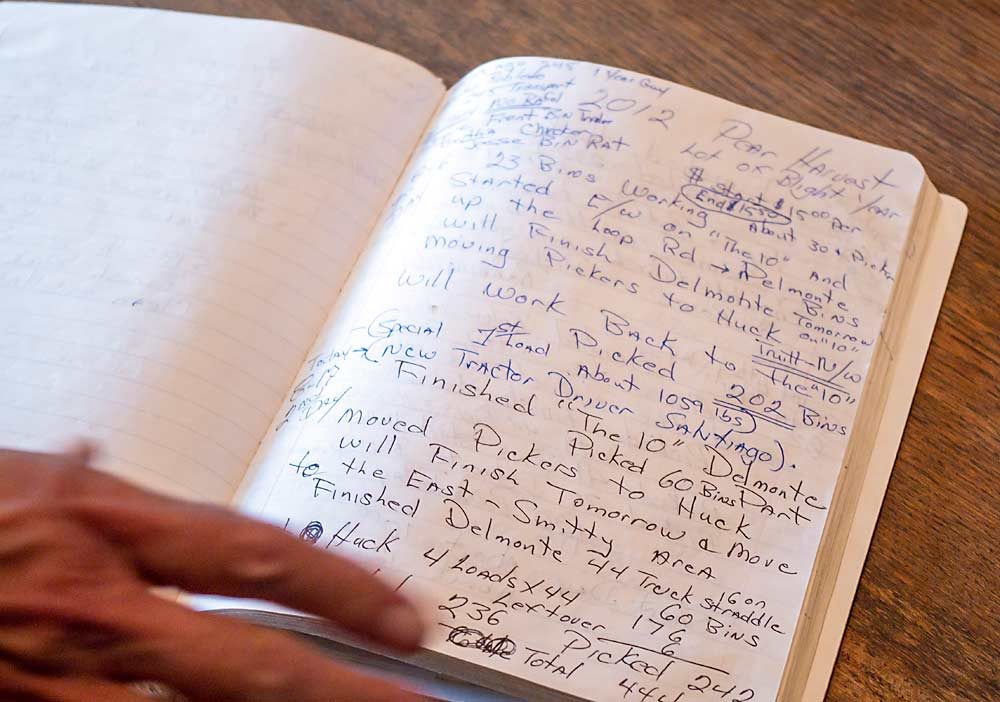 1 Year Gray
Transport
2012 Pear Harvest
Front Bin Trailer
Checker Lot OK Blight 1/ear
Bin Rat $ Start $1500 per
23 Bins (End $1550) About 30 + Picker
Started Working on "The 10" and
up the E/W Loop Rd → Delmonte
will Finish Delmonte Bins Tomorrow
Moving Pickers to Huck on "10"
will Work Back to Truitt - N/W
the "10"
Picked 202 Bins
(Special 1st Load About 1059 lbs)
Today → (New Tractor Driver Santiago).
Finished "The 10" Delmonte
2nd Day Picked 60 Bins Part
Moved Pickers to Huck
will Finish Tomorrow & Move
to the East - Smitty Area
Finished Delmonte 44 Truck 16 on Straddle
60 Bins
Huck 4 Loads x 44 176
Leftover 6
236 Picked 242
Total 444